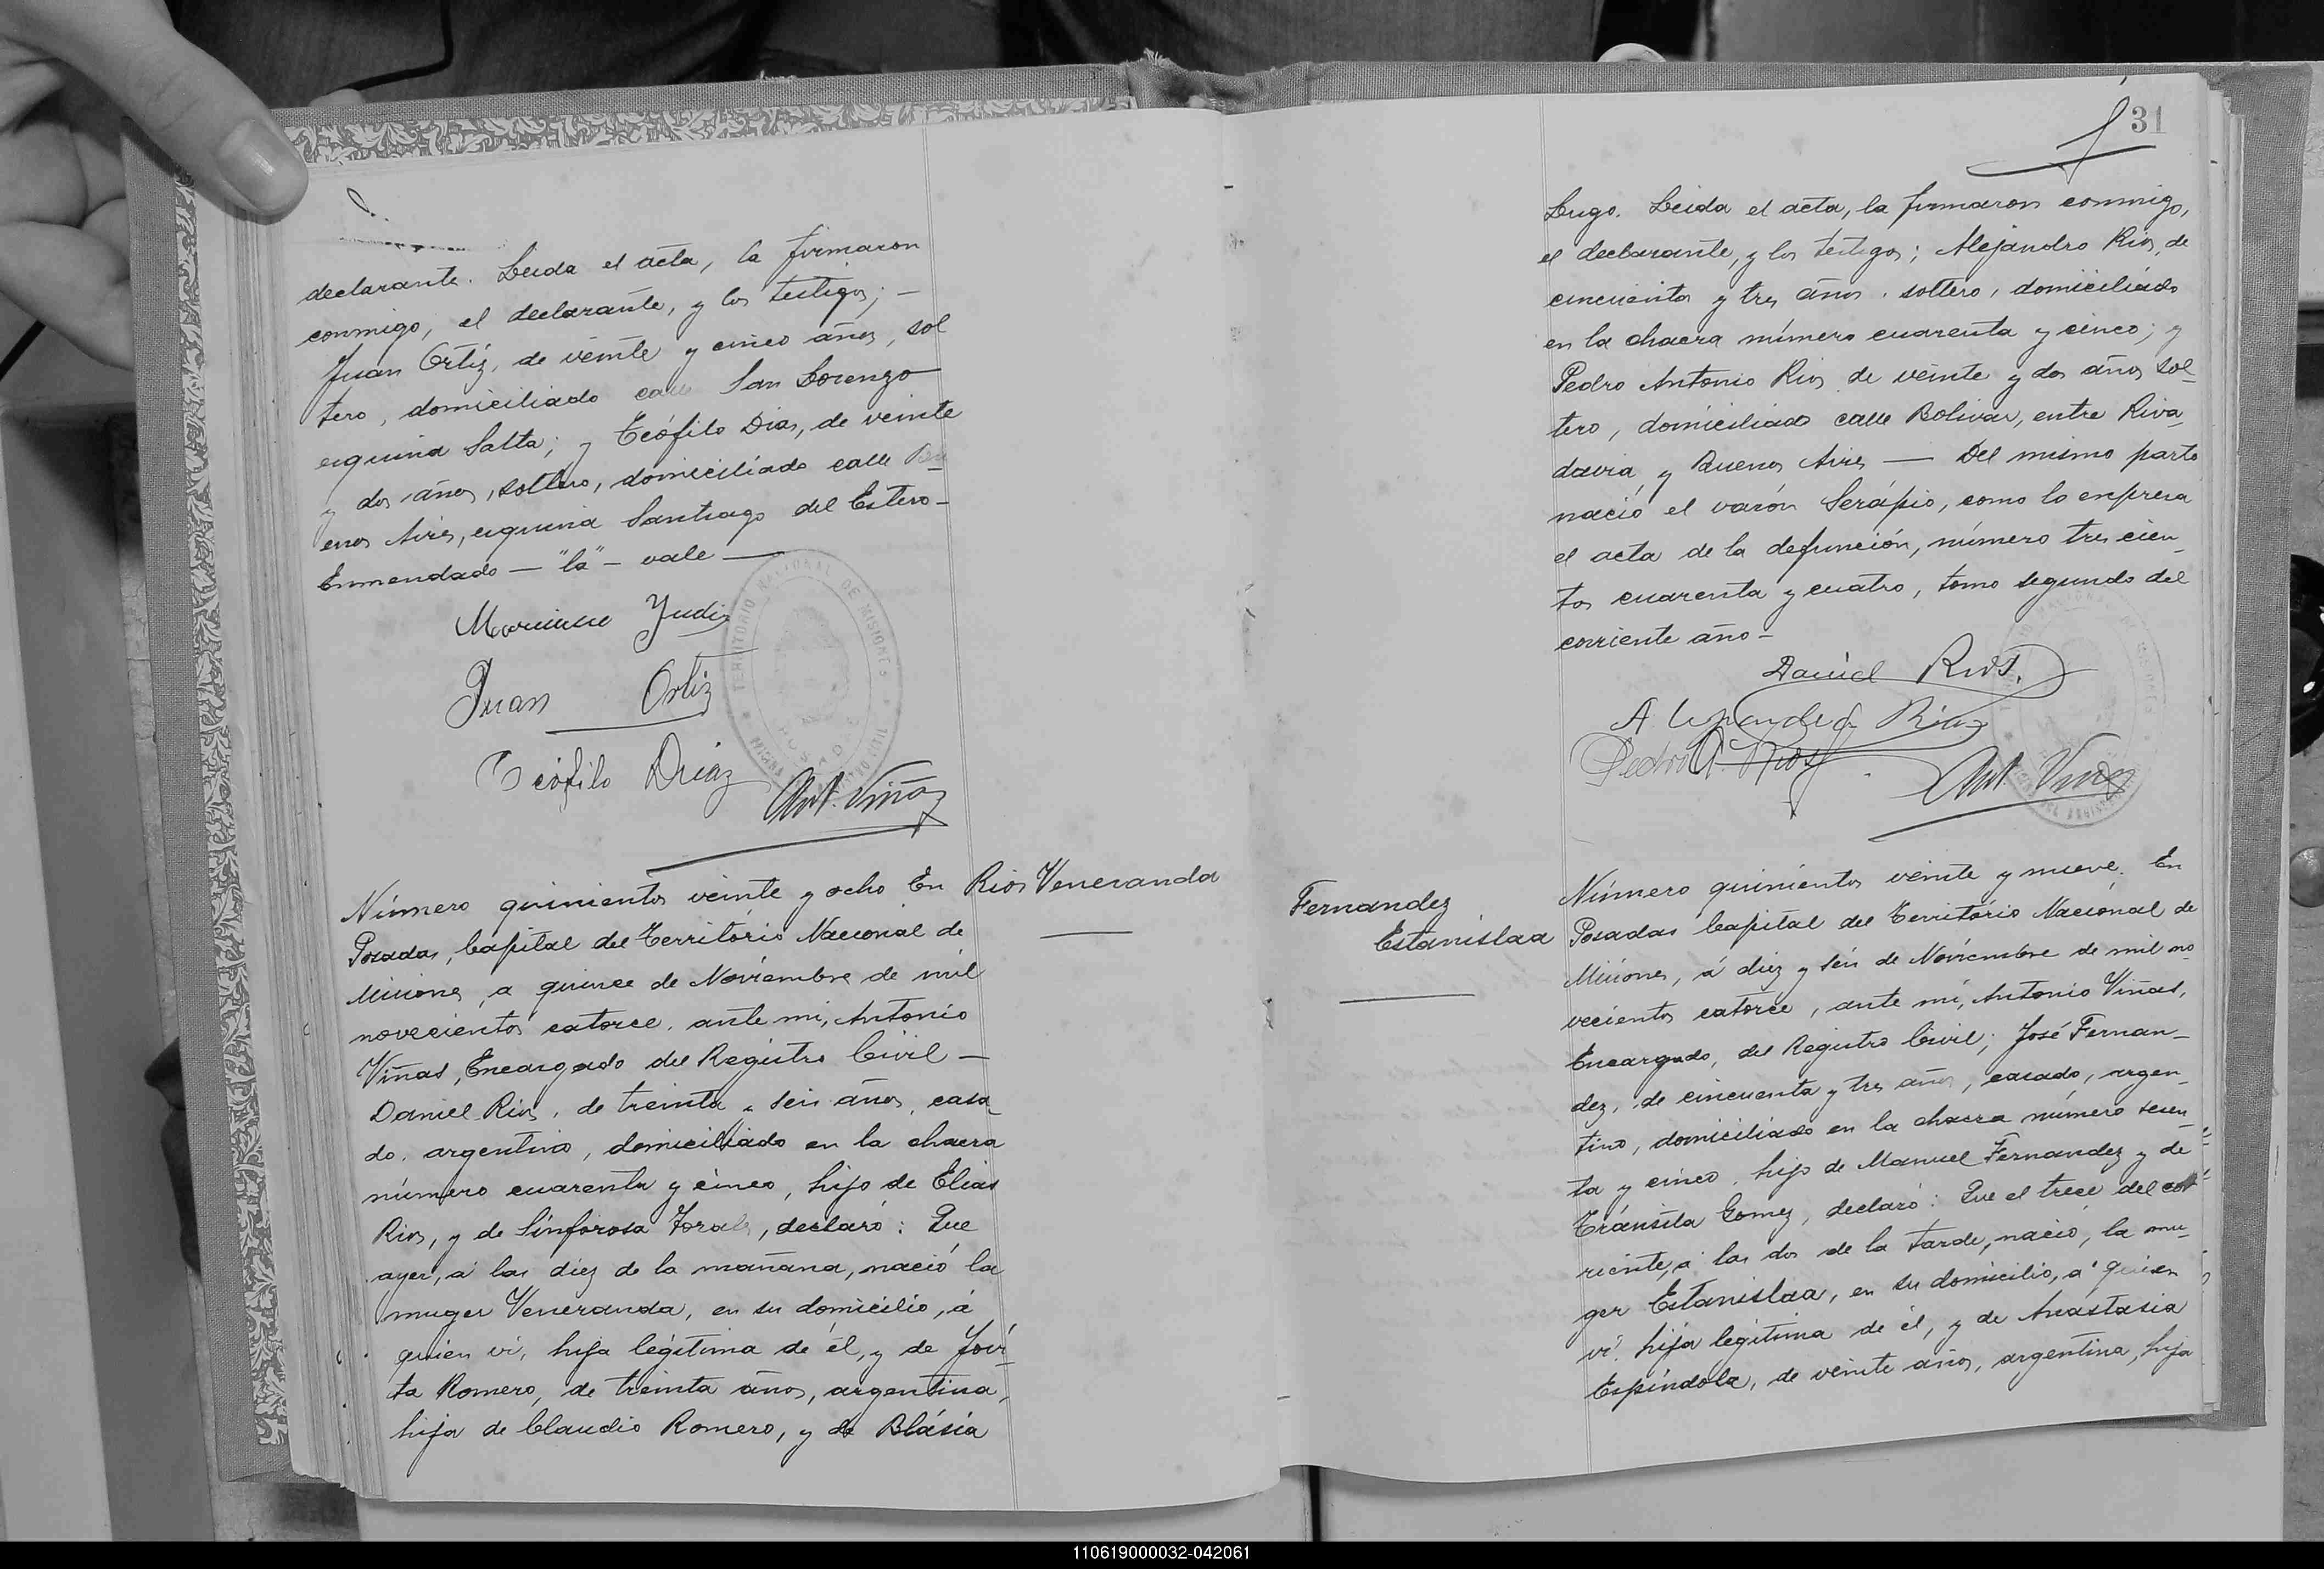 declarante. Leida el acta, la firmaron
conmigo, el declarante, y los testigos; —
Juan Ortiz, de veinte y cinco años, sol
tero, domiciliado calle San Lorenzo
esquina Salta; y Teófilo Dias, de veinte
y dos años, soltero, domiciliado calle Bu
enos Aires, esquina Santiago del Estero —
Enmendado — "la" — vale —
Juan Ortiz
Teófilo Diaz
Ant. Viñas
TERRITORIO NACIONAL DE MISIONES
Número quinientos veinte y ocho En
Posadas, Capital del Territorio Nacional de
Misiones, a quince de Noviembre de mil
novecientos catorce, ante mi, Antonio
Viñas, Encargado del Registro Civil —
Daniel Rios, de treinta y seis años, casa_
do, argentino, domiciliado en la chacra
número cuarenta y cinco, hijo de Elias
Rios, y de Sinforosa, declaró: Que
ayer, á las diez de la mañana, nació la
muger Veneranda, en su domicilio, á
quien vi, hija legitima de él, y de Jovi_
ta Romero, de treinta años, argentina,
hija de Claudio Romero, y de Blásia
Rios Veneranda
31
Lugo. Leida el acta, la firmaron conmigo,
el declarante, y los testigos; Alejandro Rios, de
cincuenta y tres años, soltero, domiciliado
en la chacra número cuarenta y cinco; y
Pedro Antonio Rios de veinte y dos años sol_
tero, domiciliado calle Bolivar, entre Riva_
davia, y Buenos Aires — Del mismo parto
nació el varón Serápio, como lo enpresa
el acta de la defunción, número tres cien_
tos cuarenta y cuatro, tomo segundo del
corriente año —
Daniel Rios.
Alejandro Rios
Pedro A. Rios
Ant. Viñas
Fernandez
Estanislaa
Número quinientos veinte y nueve. En
Posadas Capital del Territorio Nacional de
Misiones, á diez y seis de Noviembre de mil no_
vecientos catorce, ante mi, Antonio Viñas,
Encargado, del Registro Civil; José Fernan_
dez, de cincuenta y tres años, casado, argen_
tino, domiciliado en la chacra número sesen_
ta y cinco, hijo de Manuel Fernandez y de
Tránsita Gomez, declaró: Que el trece del cor
riente, á las dos de la tarde, nació, la mu_
ger Estanislaa, en su domicilio, á quien
vi, hija legitima de él, y de Anastasia
Espíndola, de veinte años, argentina, hija
110619000032-042061